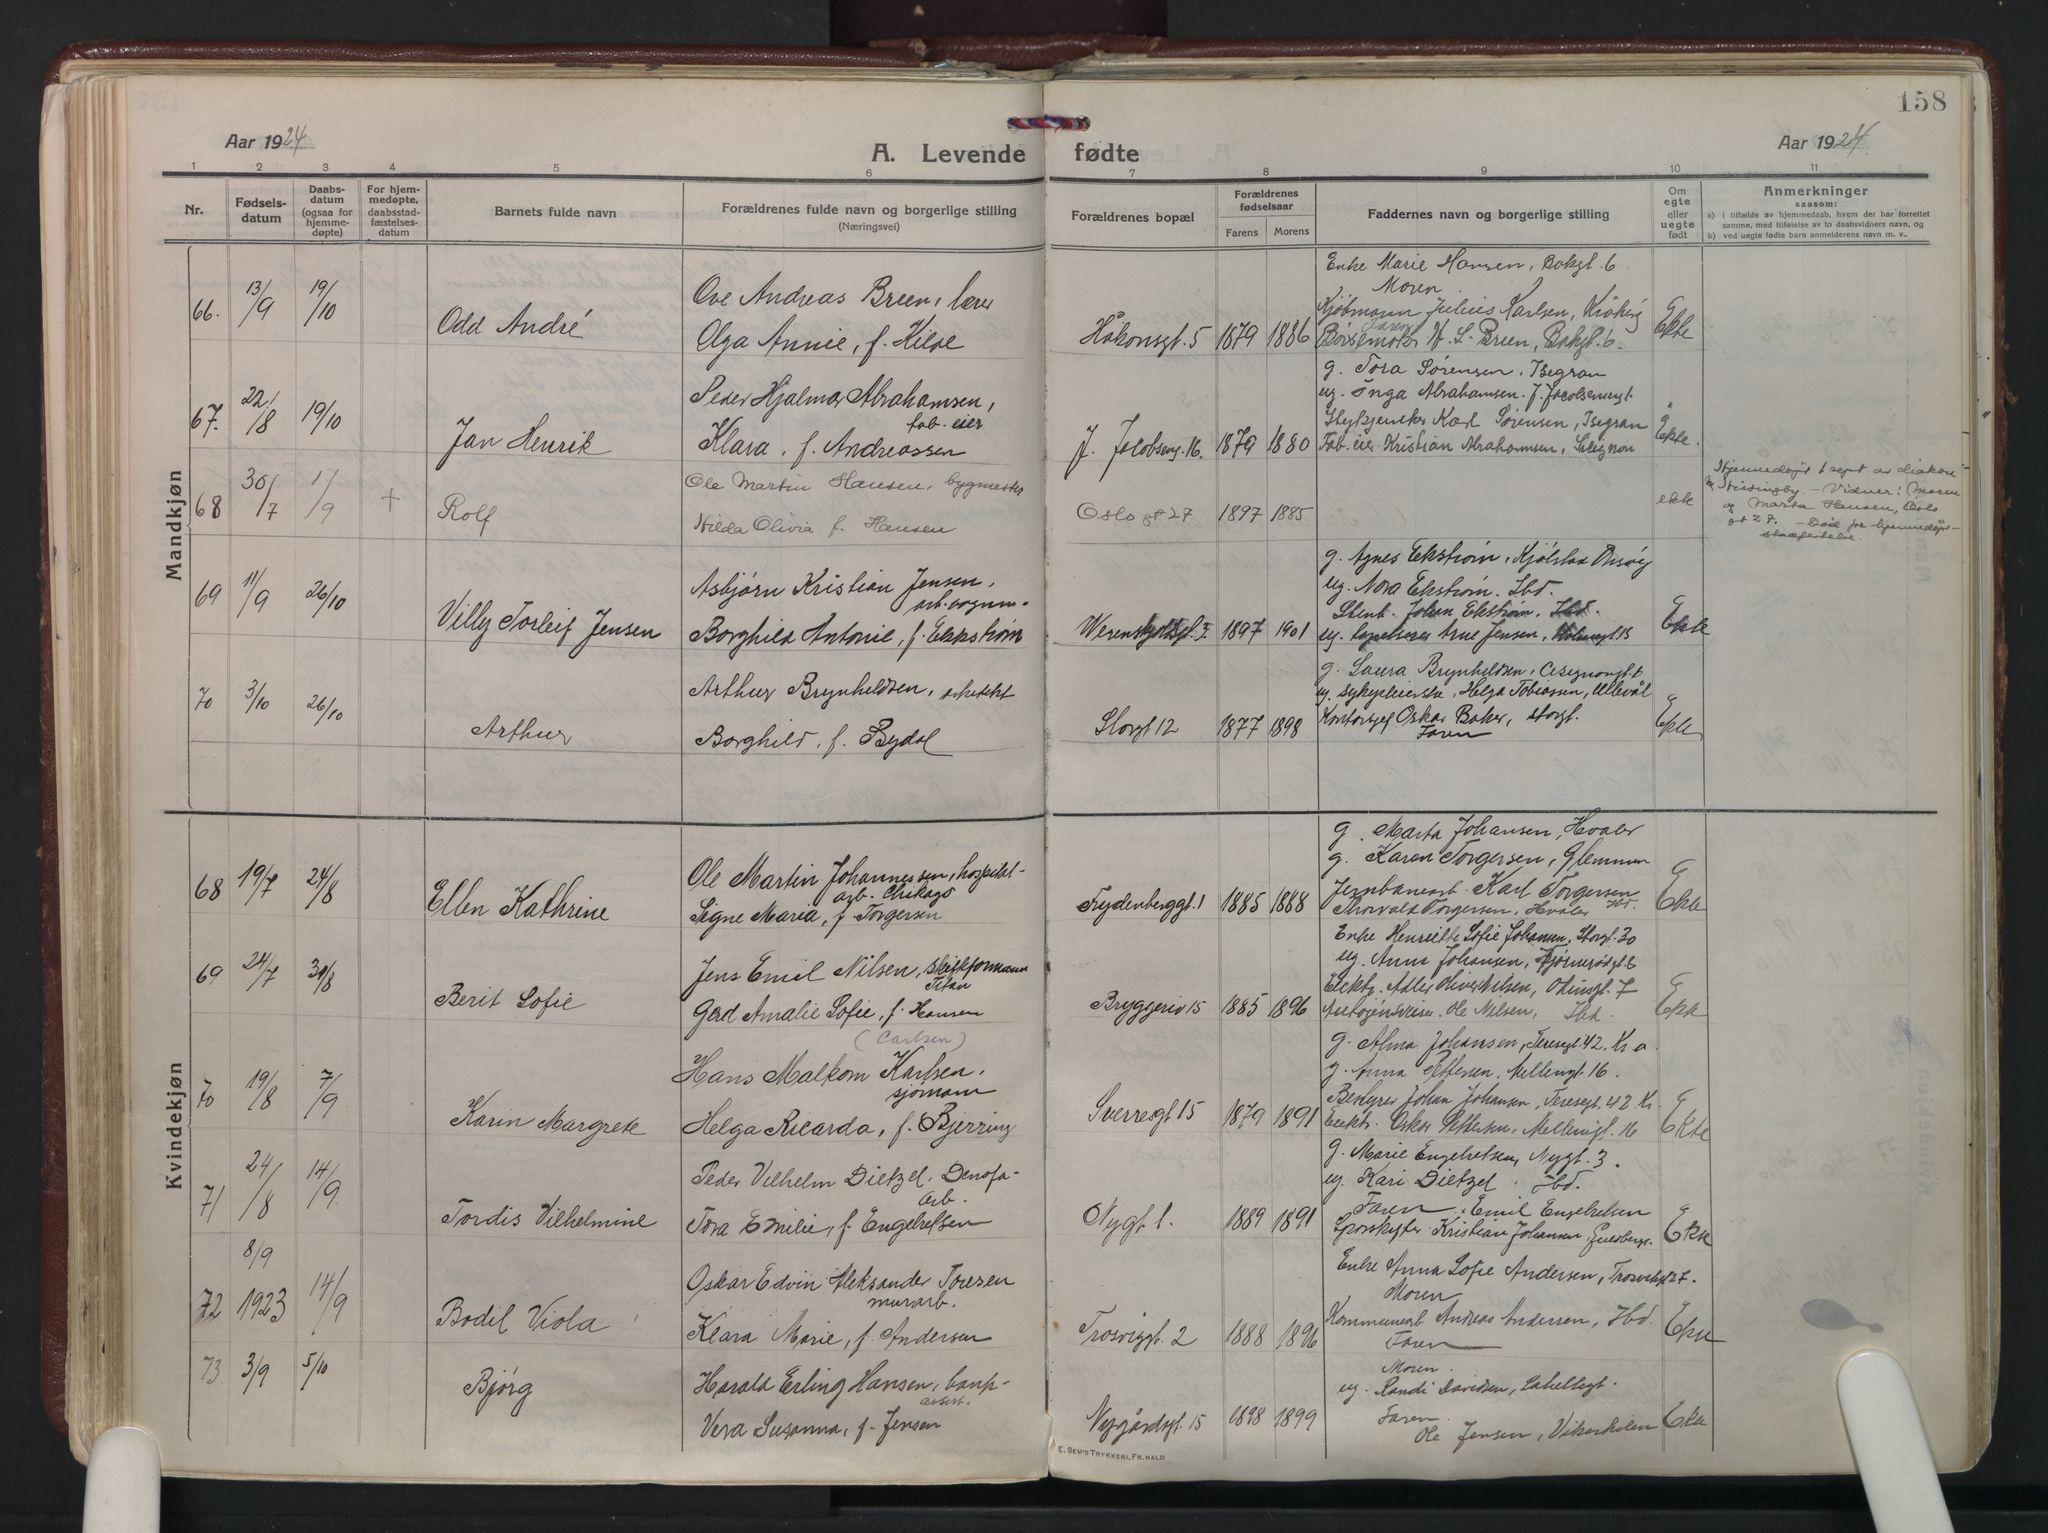 158
Aar 1924
A. Levende fødte
Aar 1924
1 2 3 4 5 6 7 8 9 10 11
Nr.
Fødsels-
datum
Daabs-
datum
(ogsaa for
hjemme-
døpte)
For hjem-
medøpte,
daabsstad-
fæstelses-
datum
Barnets fulde navn
Forældrenes fulde navn og borgerlige stilling
(Næringsvei)
Forældrenes bopæl
Forældrenes
fødselsaar
Farens Morens
Faddernes navn og borgerlige stilling
Om
egte
eller
uegte
født
Anmerkninger
saasom:
a) i tilfælde av hjemmedaab, hvem der har forrettet
samme, med tilføielse av to daabsvidners navn, og
b) ved uegte fødte barn anmelderens navn m. v..
Mandkjøn
66. 13/9 19/10
Odd André
Ove Andreas Breen, lærer
Olga Annie, f. Kilde
Håkonsgt. 5 1879 1886
Enke Marie Hansen, Bakgt. 6
Moren
Kjøbmann Julius Karlsen, Kråkerø
Faren
W. S. Breen, Bakgt. 6.
Ekte
67. 22/8 19/10
Jan Henrik
Peder Hjalmar Abrahamsen,
fab. eier
Klara, f. Andreassen
J. Jacobseng. 16. 1879 1880
g. Tora Sørensen, Isegran
ug. Inga Abrahamsen. J. Jacobsensgt
Karl Sørensen, Isegran
Fab. eier Kristian Abrahamsen,
Ekte.
68 30/7 1/9 +
Rolf
Ole Martin Hansen, bygmester
Hilda Olivia f. Hansen
Oslogt 27 1897 1885
ekte
Hjemmedøpt 1 sept av diakon
Vidner: Moren
og Marta Hansen, Oslo
gt 27. – Død før hjemmedåps-
stadfestelse.
69 11/9 26/10
Villy Torleif Jensen
Asbjørn Kristian Jensen,
Borghild Antonie, f. Ekstrøm
Werenskjoldsgt. 3. 1897 1901
g. Agnes Ekstrøm, Kjølstad Onsøy
ug. Nora Ekstrøm. Ibd.
Stenh. Johan Ekstrøm. Ibd.
ug. Arne Jensen,
Ekte
70 3/10 26/10
Arthur
Arthur Brynhildsen, arkitekt
Borghild, f. Bydal
Storgt 12 1877 1898
g. Laura Brynhildsen,
ug. sykepleierske, Helga Tobiassen, Ullevål
Kontorsjef Oskar Baker, Storgt.
Faren
Ekte
Kvindekjøn
68 19/7 24/8
Ellen Kathrine
Ole Martin Johannessen, hospital-
arb. Chikago
Signe Maria, f. Torgersen
Frydenberggt. 1 1885 1888
g. Marta Johansen, Hvaler
g. Karen Torgersen, Glemmen
Jernbanearb. Karl Torgersen
Ibd.
Thorvald Torgersen, Hvaler
Ekte
69 24/7 31/8
Berit Sofie
Jens Emil Nilsen, skiftformann
Titan
Gerd Amalie Sofie, f. Hansen
Bryggeriv 15 1885 1896
Enke Henriette Sofie Johansen, Storgt. 30
ug. Anna Johansen,
Elektr. Adler Oliver Nilsen, Odinsgt. 7
Ole Nilsen, Ibd.
Ekte
(Carlsen)
70 19/8 7/9
Karin Margrete
Hans Malkom Karlsen,
sjømann
Helga Ricarda, f. Bjerring
Sverresgt 15 1879 1891
g. Alma Johansen, Teresegt. 42. Kr a.
g. Anna Pettersen, Mellemgt 16.
Bestyrer Johan Johansen, Teresegt. 42 Kr.
Elektr. Oskar Pettersen, Mellemgt. 16
Ekte
71 24/8 14/9
Tordis Vilhelmine
Peder Vilhelm Dietzel, Denofa-
arb.
Tora Emilie, f. Engelretsen
Nygt 1. 1889 1891
g. Marie Engelretsen, Nygt. 3.
ug. Kari Dietzel. Ibd.
Faren. Emil Engelretsen
Sporskifter Kristian Johansen,
Ekte
72 8/9 1923 14/9
Bodil Viola
Oskar Edvin Aleksander Toresen
murarb.
Klara Marie, f. Andersen
Trosviggt. 2 1888 1896
Enke Anna Sofie Andersen, Trosviksgt 27.
Moren
Kommunearb Andreas Andersen, Ibd.
Faren
Ekte
73 3/9 5/10
Bjørg
Harald Erling Hansen, bank-
assist.
Vera Susanna, f. Jensen
Nygårdsgt. 15 1898 1899
Moren.
ug. Randi Davidsen,
Faren.
Ole Jensen, Vikerkilen
Ekte
E. SEM'S TRYKKERI, FR.HALD